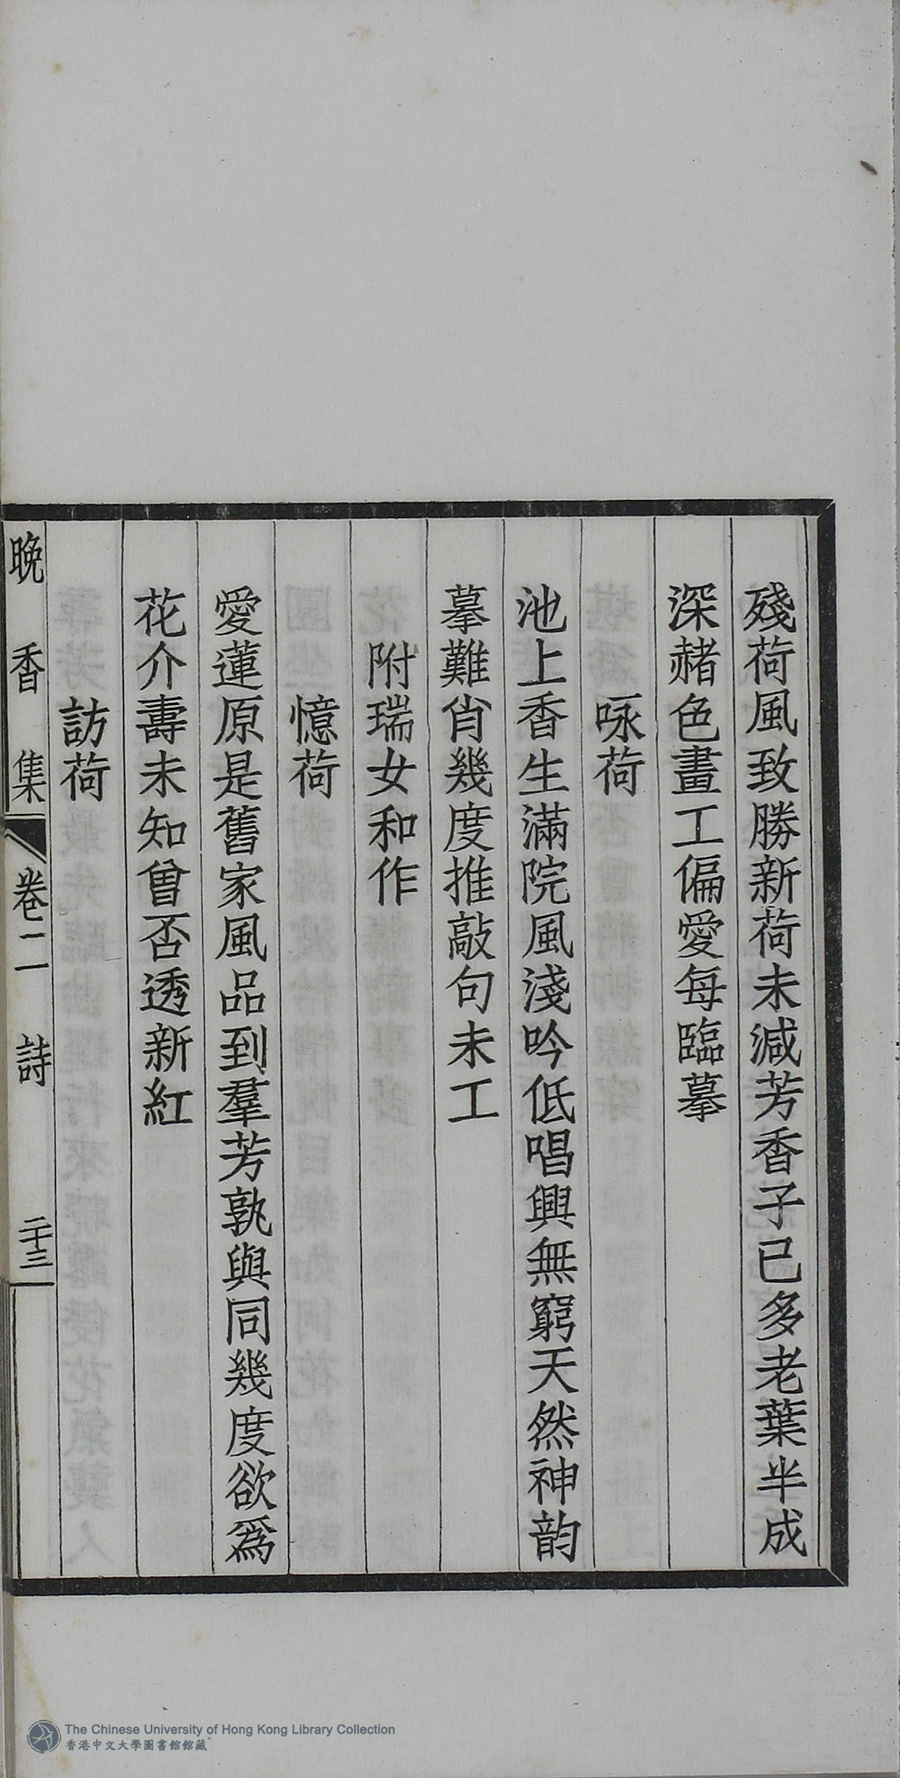 殘荷風致勝新荷未減芳香子已多老葉半成
深赭色畫工偏愛每臨摹
咏荷
池上香生滿院風淺吟低唱興無窮天然神韵
摹難肖幾度推敲句未工
附瑞女和作
憶荷
愛蓮原是舊家風品到羣芳孰與同幾度欲爲
花介壽未知曾否透新紅
訪荷
晚香集 卷二 詩 二十三
The Chinese University of Hong Kong Library Collection
香港中文大學圖書館館藏